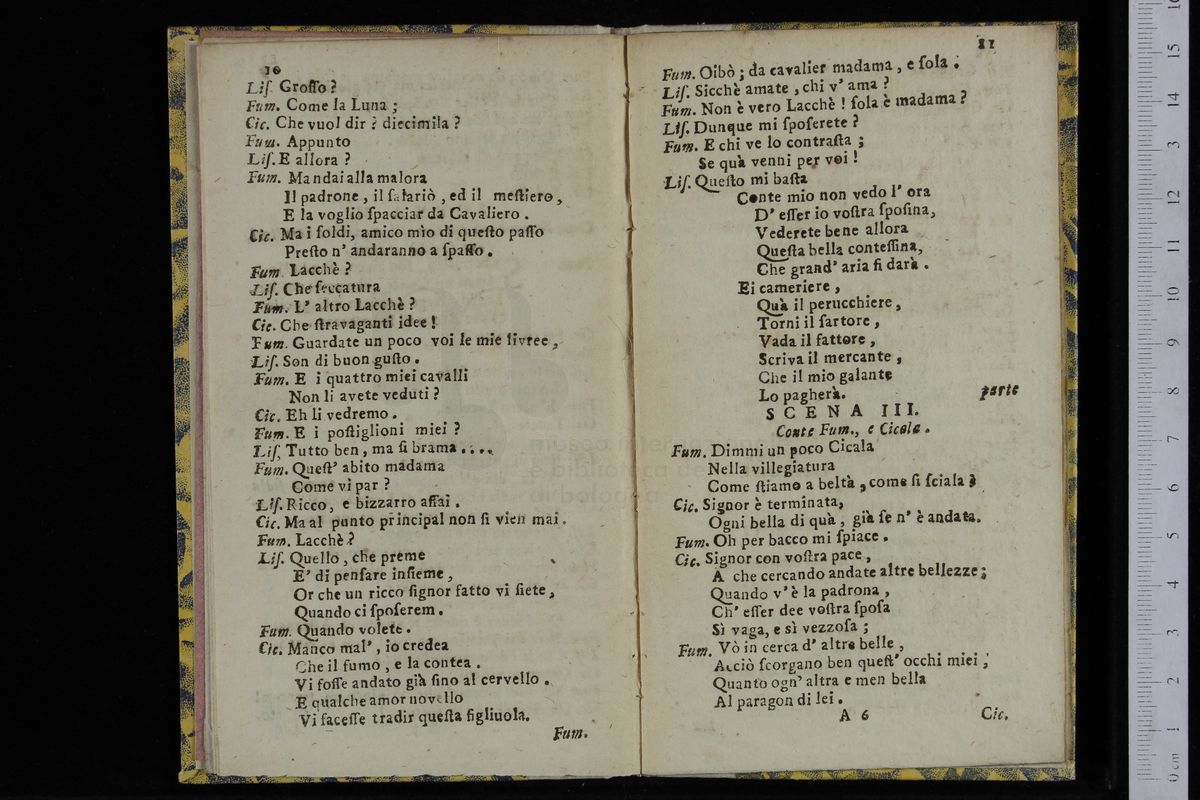 10
Liſ. Groſſo ?
Fum. Come la Luna ;
Cic. Che vuol dir ? diecimila ?
Fum. Appunto
Liſ. E allora ?
Fum. Mandai alla malora
Il padrone , il ſalariò , ed il meſtiero ,
E la voglio ſpacciar da Cavaliero .
Cic. Ma i ſoldi, amico mìo di queſto paſſo
Preſto n' andaranno a ſpaſſo .
Fum. Lacchè ?
Liſ. Che ſeccatura
Fum. L' altro Lacchè ?
Cic. Che ſtravaganti idee !
Fum. Guardate un poco voi le mie livree ,
Liſ. Son di buon guſto .
Fum. E i quattro miei cavalli
Non li avete veduti ?
Cic. Eh li vedremo .
Fum. E i poſtiglioni miei ?
Liſ. Tutto ben , ma ſi brama . . . .
Fum. Queſt' abito madama
Come vi par ?
Liſ. Ricco , e bizzarro aſſai .
Cic. Ma al punto principal non ſi vien mai .
Fum. Lacchè ?
Liſ. Quello , che preme
E' di penſare inſieme ,
Or che un ricco ſignor fatto vi ſiete ,
Quando ci ſpoſerem .
Fum. Quando volete .
Cic. Manco mal' , io credea
Che il fumo , e la contea .
Vi foſſe andato già ſino al cervello .
E qualche amor novello
Vi faceſſe tradir queſta figliuola.
Fum.
11
Fum. Oibò ; da cavalier madama , e ſola .
Liſ. Sicchè amate , chi v' ama ?
Fum. Non è vero Lacchè ! ſola è madama ?
Liſ. Dunque mi ſpoſerete ?
Fum. E chi ve lo contraſta ;
Se quà venni per voi !
Liſ. Queſto mi baſta
Conte mio non vedo l' ora
D' eſſer io voſtra ſpoſina,
Vederete bene allora
Queſta bella conteſſina,
Che grand' aria ſi darà .
Ei cameriere ,
Quà il perucchiere ,
Torni il ſartore ,
Vada il fattore ,
Scriva il mercante ,
Che il mio galante
Lo pagherà. parte
SCENA III.
Conte Fum., e Cicala .
Fum. Dimmi un poco Cicala
Nella villegiatura
Come ſtiamo a beltà , come ſi ſciala ?
Cic. Signor è terminata,
Ogni bella di quà , già ſe n' è andata.
Fum. Oh per bacco mi ſpiace .
Cic. Signor con voſtra pace ,
A che cercando andate altre bellezze ;
Quando v' è la padrona ,
Ch' eſſer dee voſtra ſpoſa
Sì vaga, e sì vezzoſa ;
Fum. Vò in cerca d' altre belle ,
Acciò ſcorgano ben queſt' occhi miei ,
Quanto ogn' altra e men bella
Al paragon di lei .
A 6 Cic.